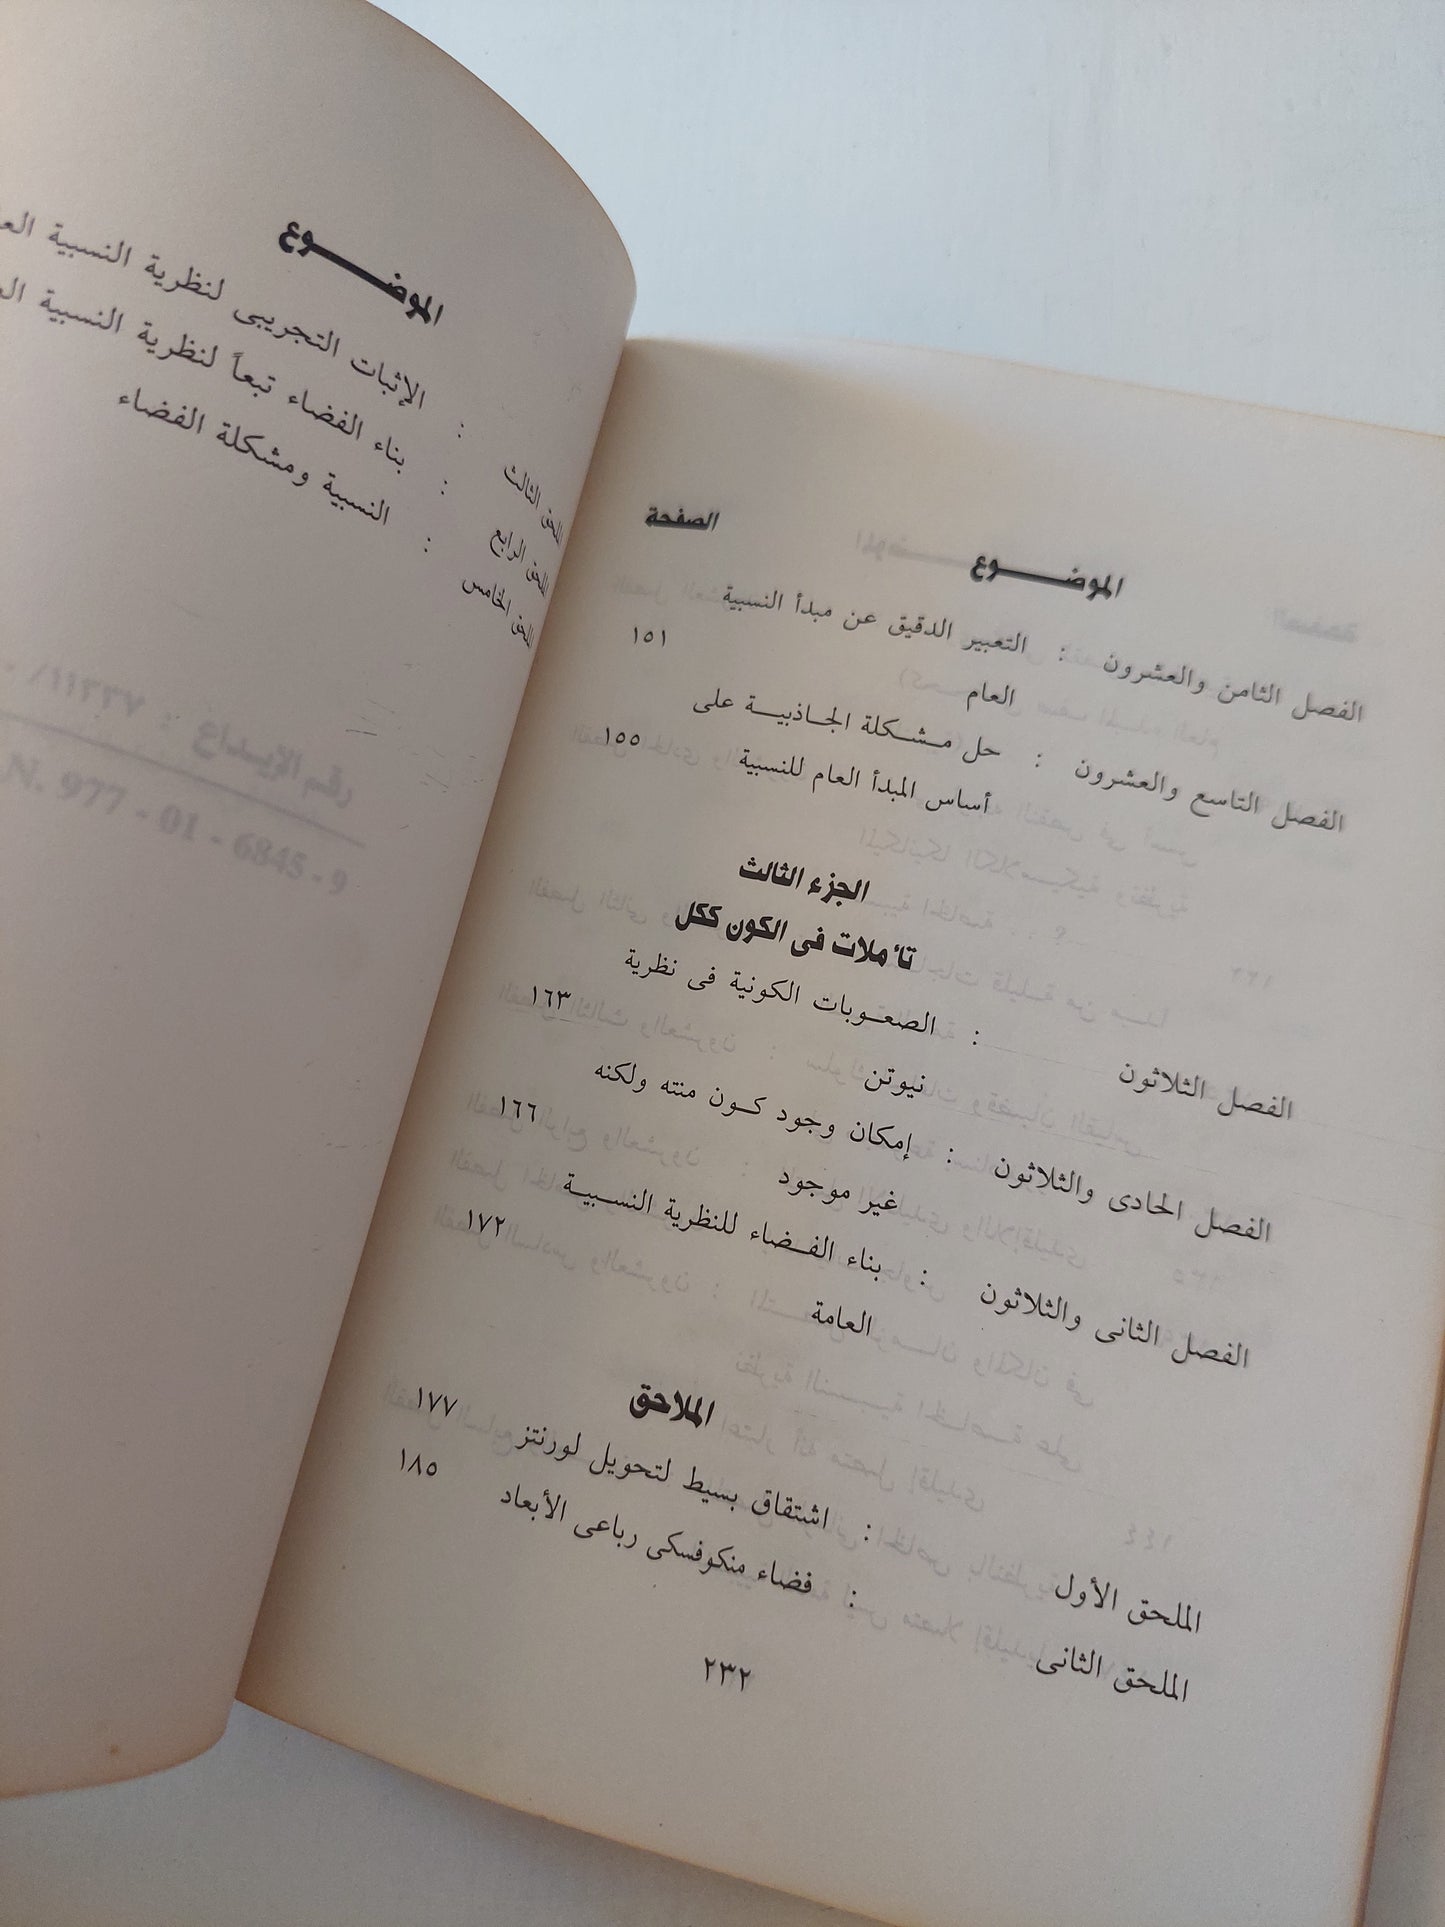 الموضـــــوع الصفحة
الفصل الثامن والعشرون : التعبير الدقيق عن مبدأ النسبية
العام ١٥١
الفصل التاسع والعشرون : حل مشكلة الجاذبية على
أساس المبدأ العام للنسبية ١٥٥
الجزء الثالث
تأملات فى الكون ككل
الفصل الثلاثون : الصعوبات الكونية فى نظرية
نيوتن ١٦٣
الفصل الحادى والثلاثون : إمكان وجود كون منته ولكنه
غير موجود ١٦٦
الفصل الثانى والثلاثون : بناء الفضاء للنظرية النسبية
العامة ١٧٢
الملاحق
الملحق الأول : اشتقاق بسيط لتحويل لورنتز ١٧٧
الملحق الثانى : فضاء منكوفسكى رباعى الأبعاد ١٨٥
٢٣٢
الموضـــــوع
الملحق الثالث : الإثبات التجريبى لنظرية النسبية
الملحق الرابع : بناء الفضاء تبعاً لنظرية النسبية
الملحق الخامس : النسبية ومشكلة الفضاء